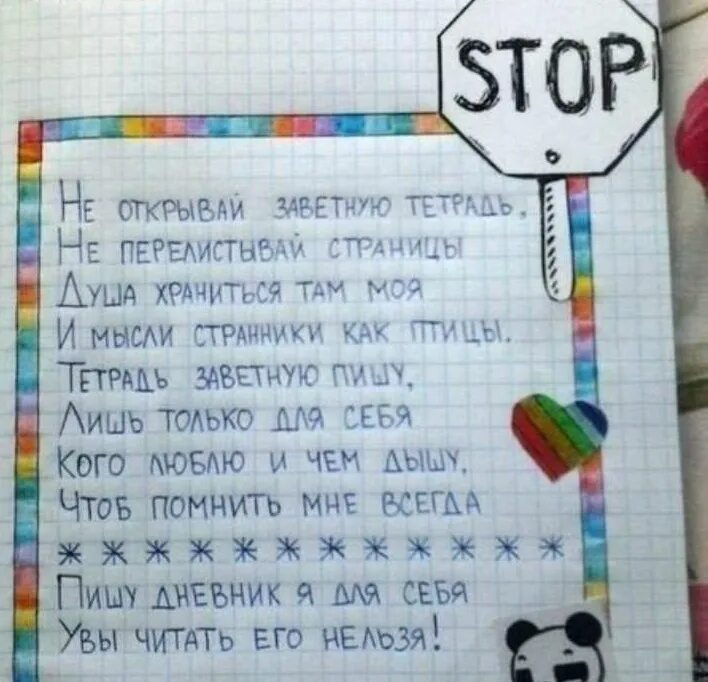 STOP
Не открывай заветную тетрадь,
Не перелистывай страницы
Душа храниться там моя
И мысли странники как птицы.
Тетрадь заветную пишу,
Лишь только для себя
Кого люблю и чем дышу,
Чтоб помнить мне всегда
* * * * * * * * * * * *
Пишу дневник я для себя
Увы читать его нельзя!